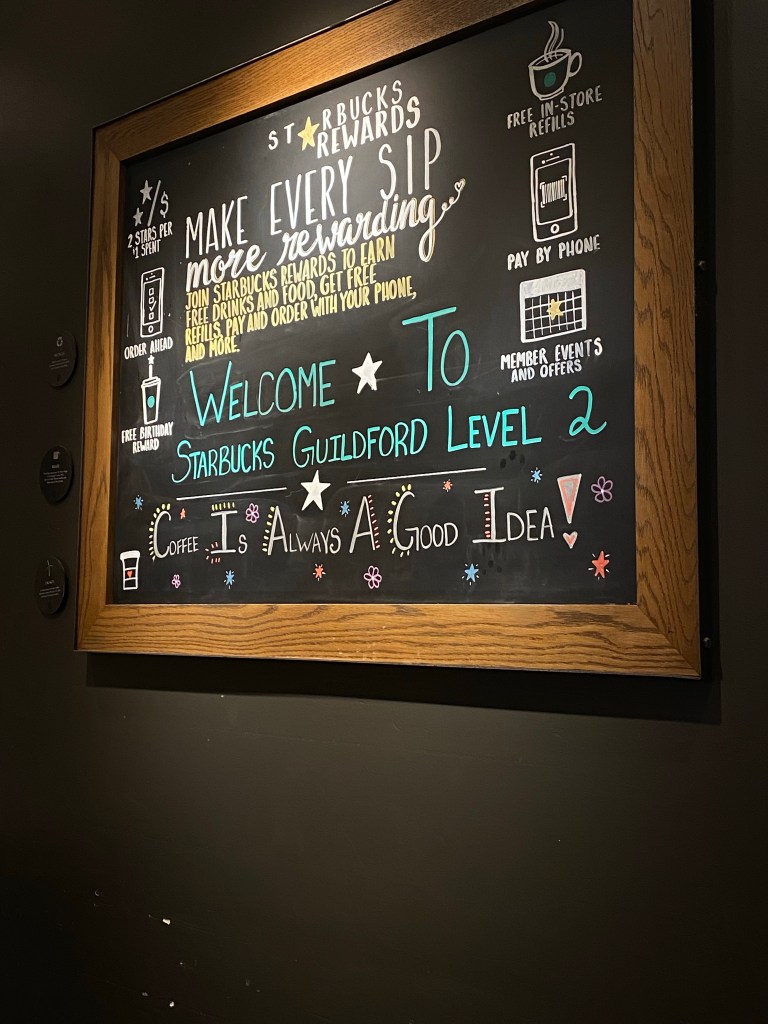 STARBUCKS
REWARDS
MAKE EVERY SIP
more rewarding
JOIN STARBUCKS REWARDS TO EARN
FREE DRINKS AND FOOD, GET FREE
REFILLS, PAY AND ORDER WITH YOUR PHONE,
AND MORE.
2 STARS PER
$1 SPENT
ORDER AHEAD
FREE BIRTHDAY
REWARD
FREE IN-STORE
REFILLS
PAY BY PHONE
MEMBER EVENTS
AND OFFERS
WELCOME TO
STARBUCKS GUILDFORD LEVEL 2
COFFEE IS ALWAYS A GOOD IDEA!